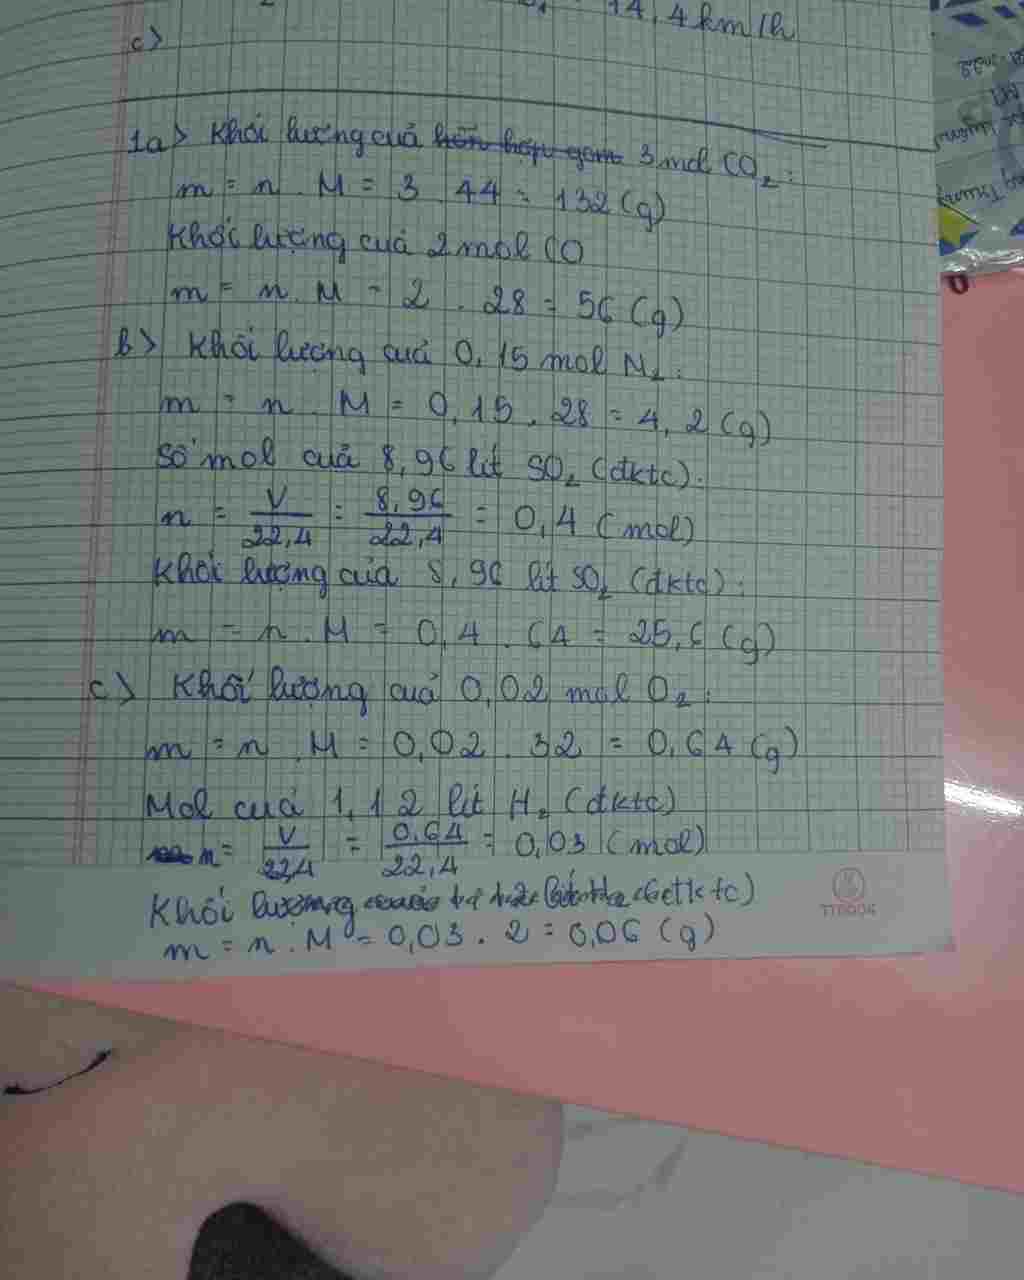 14,4 km/h
c>
1a> Khối lượng cuả hỗn hợp gồm 3 mol CO₂:
m = n . M = 3 . 44 = 132 (g)
Khối lượng cuả 2 mol CO
m = n . M = 2 . 28 = 56 (g)
b> Khối lượng cuả 0,15 mol N₂:
m = n . M = 0,15 . 28 = 4,2 (g)
Số mol cuả 8,96 lít SO₂ (đktc):
n = V/22,4 = 8,96/22,4 = 0,4 (mol)
Khối lượng cuả 8,96 lít SO₂ (đktc):
m = n . M = 0,4 . 64 = 25,6 (g)
c> Khối lượng cuả 0,02 mol O₂:
m = n . M = 0,02 . 32 = 0,64 (g)
Mol cuả 1,12 lít H₂ (đktc)
n = V/22,4 = 0,64/22,4 = 0,03 (mol)
Khối lượng (đktc)
m = n . M = 0,03 . 2 = 0,06 (g)